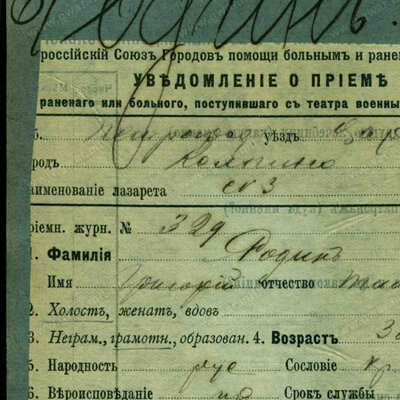 Родинъ.
россійскій Союзъ Городовъ помощи больнымъ и ране
УВѢДОМЛЕНІЕ О ПРІЕМѢ
раненаго или больного, поступившаго съ театра военны
б. Петрогр. уѣздъ
родъ Колпино
аименованіе лазарета № 3
ріемн. журн. № 329
1. Фамилія Родинъ
Имя Григорій отчество
2. Холостъ, женатъ, вдовъ
3. Неграм., грамотн., образован. 4. Возрастъ 3
5. Народность рус Сословіе кр
6. Вѣроисповѣданіе пр Срокъ службы